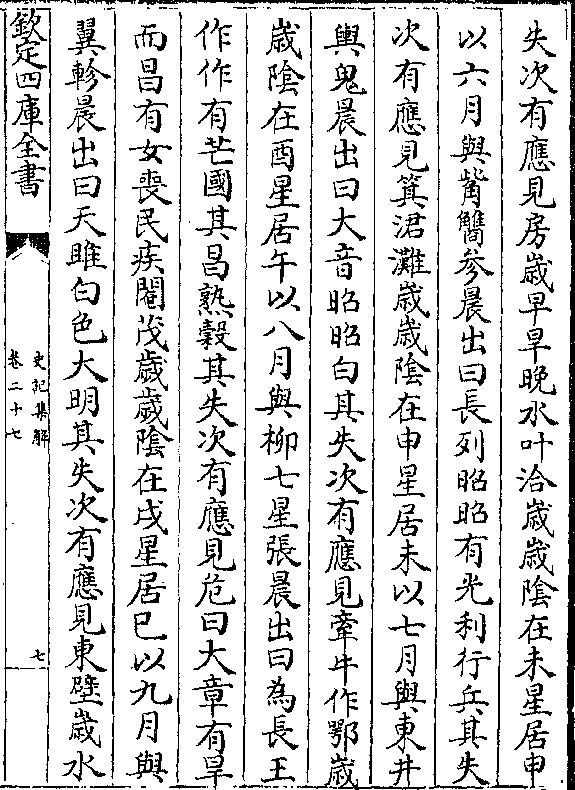 失次有應見房歲早旱晚水叶洽歲歲陰在未星居申
以六月與觜觿參晨出曰長列昭昭有光利行兵其失
次有應見箕涒灘歲歲陰在申星居未以七月與東井
輿鬼晨出曰大音昭昭白其失次有應見牽牛作鄂歲
歲陰在酉星居午以八月與柳七星張晨出曰為長王
作作有芒國其昌熟穀其失次有應見危曰大章有旱
而昌有女喪民疾閹茂歲歲陰在戌星居巳以九月與
翼軫晨出曰天雎白色大明其失次有應見東壁歲水
欽定四庫全書
史記集解
卷二十七
七